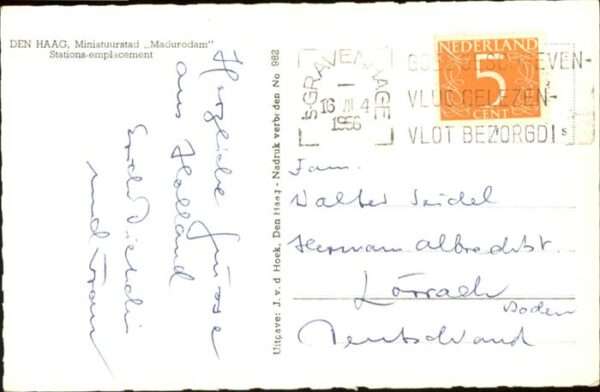 DEN HAAG, Miniatuurstad „Madurodam"
Stations-emplacement
Herzliche Grüsse
aus Holland
und Frau
Uitgave: J. v. d. Hoek, Den Haag - Nadruk verboden No 982
'S-GRAVENHAGE
16 III 4
1956
VLUG GELEZEN-
VLOT BEZORGD!
NEDERLAND
5
CENT
Fam.
Walter Seidel
Hermann Albrechtst.
Lörrach
Baden
Deutschland